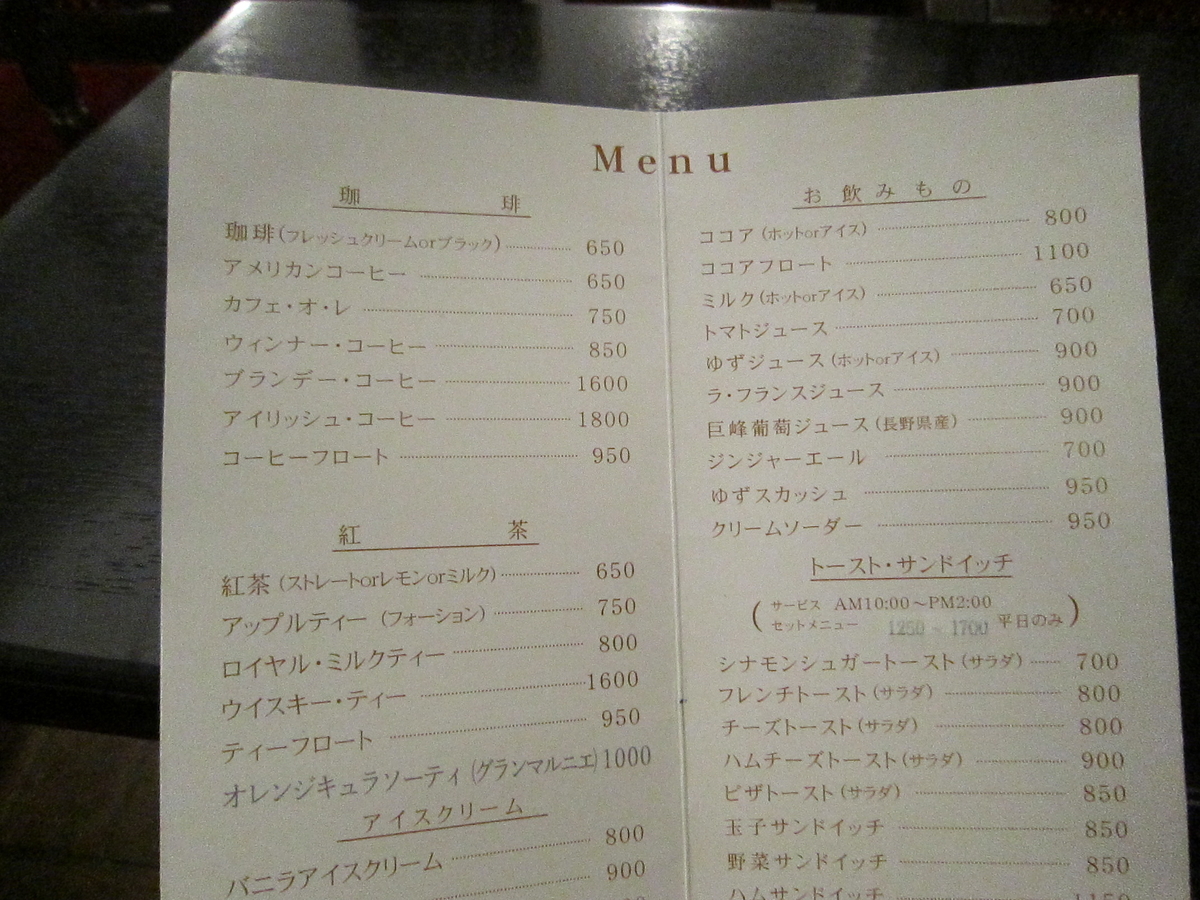 Menu
珈琲
珈琲(フレッシュクリームorブラック) 650
アメリカンコーヒー 650
カフェ・オ・レ 750
ウィンナー・コーヒー 850
ブランデー・コーヒー 1600
アイリッシュ・コーヒー 1800
コーヒーフロート 950
紅茶
紅茶(ストレートorレモンorミルク) 650
アップルティー(フォーション) 750
ロイヤル・ミルクティー 800
ウイスキー・ティー 1600
ティーフロート 950
オレンジキュラソーティ(グランマルニエ) 1000
アイスクリーム
バニラアイスクリーム 800
900
お飲みもの
ココア(ホットorアイス) 800
ココアフロート 1100
ミルク(ホットorアイス) 650
トマトジュース 700
ゆずジュース(ホットorアイス) 900
ラ・フランスジュース 900
巨峰葡萄ジュース(長野県産) 900
ジンジャーエール 700
ゆずスカッシュ 950
クリームソーダー 950
トースト・サンドイッチ
(サービス AM10:00〜PM2:00
セットメニュー 1250 ~ 1700 平日のみ)
シナモンシュガートースト(サラダ) 700
フレンチトースト(サラダ) 800
チーズトースト(サラダ) 800
ハムチーズトースト(サラダ) 900
ピザトースト(サラダ) 850
玉子サンドイッチ 850
野菜サンドイッチ 850
ハムサンドイッチ